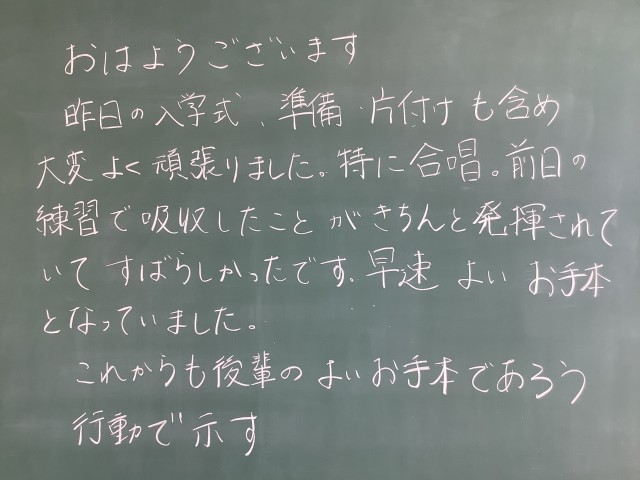 おはようございます
昨日の入学式、準備・片付けも含め
大変よく頑張りました。特に合唱。前日の
練習で吸収したことがきちんと発揮されて
いてすばらしかったです。早速よいお手本
となっていました。
これからも後輩のよいお手本であろう
行動で示す